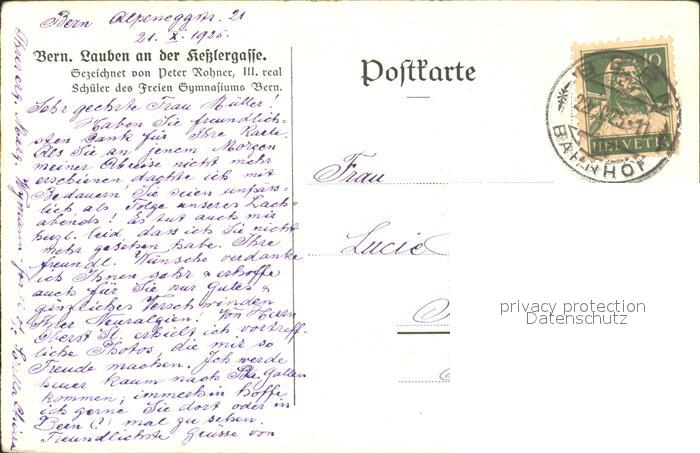 Bern Alpeneggstr. 21
21. X. 1925.
Bern. Lauben an der Keßlergasse.
Gezeichnet von Peter Rohner, III. real
Schüler des Freien Gymnasiums Bern.
Postkarte
Sehr geehrte Frau Müller!
Haben Sie freundlich-
sten Dank für Ihre Karte.
Als Sie an jenem Morgen
meiner Abreise nicht mehr
erschienen dachte ich mit
Bedauern Sie seien unpäss-
lich als Folge unseres Lach-
abends! Es tut auch mir
herzl. leid dass ich Sie nicht
mehr gesehen habe. Ihre
freundl. Wünsche verdanke
ich Ihnen sehr & erhoffe
auch für Sie nur Gutes &
gänzliches Verschwinden
Ihrer Neuralgien! Von Herrn
Oberst H. erhielt ich vortreff-
liche Photos, die mir so
Freude machen. Ich werde
heuer kaum nach St. Gallen
kommen; immerhin hoffe
ich gerne Sie dort oder in
Bern (!) mal zu sehen.
Freundlichste Grüsse von
Frau
Lucie
10
HELVETIA
BAHNHOF
privacy protection
Datenschutz